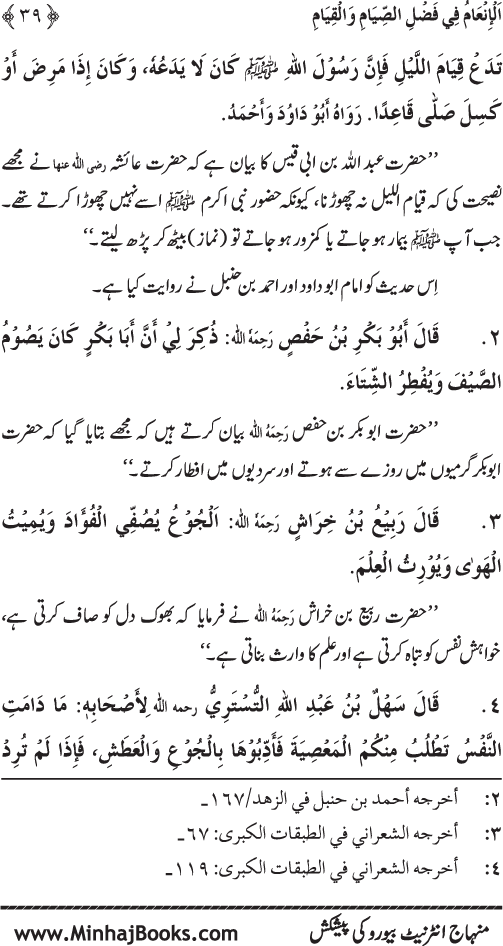 اَلإِنْعَامُ فِي فَضْلِ الصِّيَامِ وَالْقِيَامِ ﴿٣٩﴾
تَدَعْ قِيَامَ اللَّيْلِ فَإِنَّ رَسُوْلَ اللهِ ﷺ كَانَ لَا يَدَعُهُ، وَكَانَ إِذَا مَرِضَ أَوْ
كَسِلَ صَلّٰى قَاعِدًا. رَوَاهُ أَبُوْ دَاوُدَ وَأَحْمَدُ.
’’حضرت عبد اللہ بن ابی قیس کا بیان ہے کہ حضرت عائشہ رضی اللہ عنہا نے مجھے
نصیحت کی کہ قیام اللیل نہ چھوڑنا، کیونکہ حضور نبی اکرم ﷺ اسے نہیں چھوڑا کرتے تھے۔
جب آپ ﷺ بیمار ہو جاتے یا کمزور ہو جاتے تو (نماز) بیٹھ کر پڑھ لیتے۔‘‘
اِس حدیث کو امام ابو داود اور احمد بن حنبل نے روایت کیا ہے۔
٢. قَالَ أَبُوْ بَكْرِ بْنُ حَفْصٍ رَحِمَهُ الله: ذُكِرَ لِيْ أَنَّ أَبَا بَكْرٍ كَانَ يَصُوْمُ
الصَّيْفَ وَيُفْطِرُ الشِّتَاءَ.
’’حضرت ابو بکر بن حفص رَحِمَهُ الله بیان کرتے ہیں کہ مجھے بتایا گیا کہ حضرت
ابوبکر گرمیوں میں روزے سے ہوتے اور سردیوں میں افطار کرتے۔‘‘
٣. قَالَ رَبِيْعُ بْنُ خِرَاشٍ رَحِمَهُ الله: اَلْجُوْعُ يُصَفِّي الْفُؤَادَ وَيُمِيْتُ
الْهَوٰى وَيُوْرِثُ الْعِلْمَ.
’’حضرت ربیع بن خراش رَحِمَهُ الله نے فرمایا کہ بھوک دل کو صاف کرتی ہے،
خواہشِ نفس کو تباہ کرتی ہے اور علم کا وارث بناتی ہے۔‘‘
٤. قَالَ سَهْلُ بْنُ عَبْدِ اللهِ التُّسْتَرِيُّ رحمه الله لِأَصْحَابِهِ: مَا دَامَتِ
النَّفْسُ تَطْلُبُ مِنْكُمُ الْمَعْصِيَةَ فَأَدِّبُوْهَا بِالْجُوْعِ وَالْعَطَشِ، فَإِذَا لَمْ تُرِدْ
٢: أخرجه أحمد بن حنبل في الزهد/١٦٧۔
٣: أخرجه الشعراني في الطبقات الكبرى: ٦٧۔
٤: أخرجه الشعراني في الطبقات الكبرى: ١١٩۔
منہاج انٹرنیٹ بیورو کی پیشکش www.MinhajBooks.com